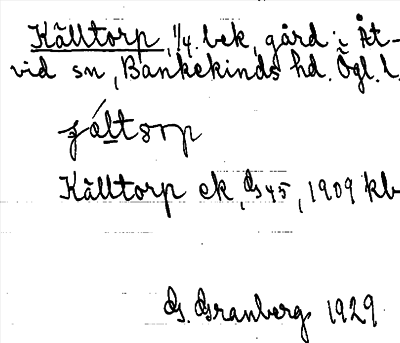 Källtorp, 1/4. bek, gård i Åt-
vid sn, Bankekinds hd. Ögl. l.
Källtorp ek, GS 45, 1909 kb
G. Granberg 1929